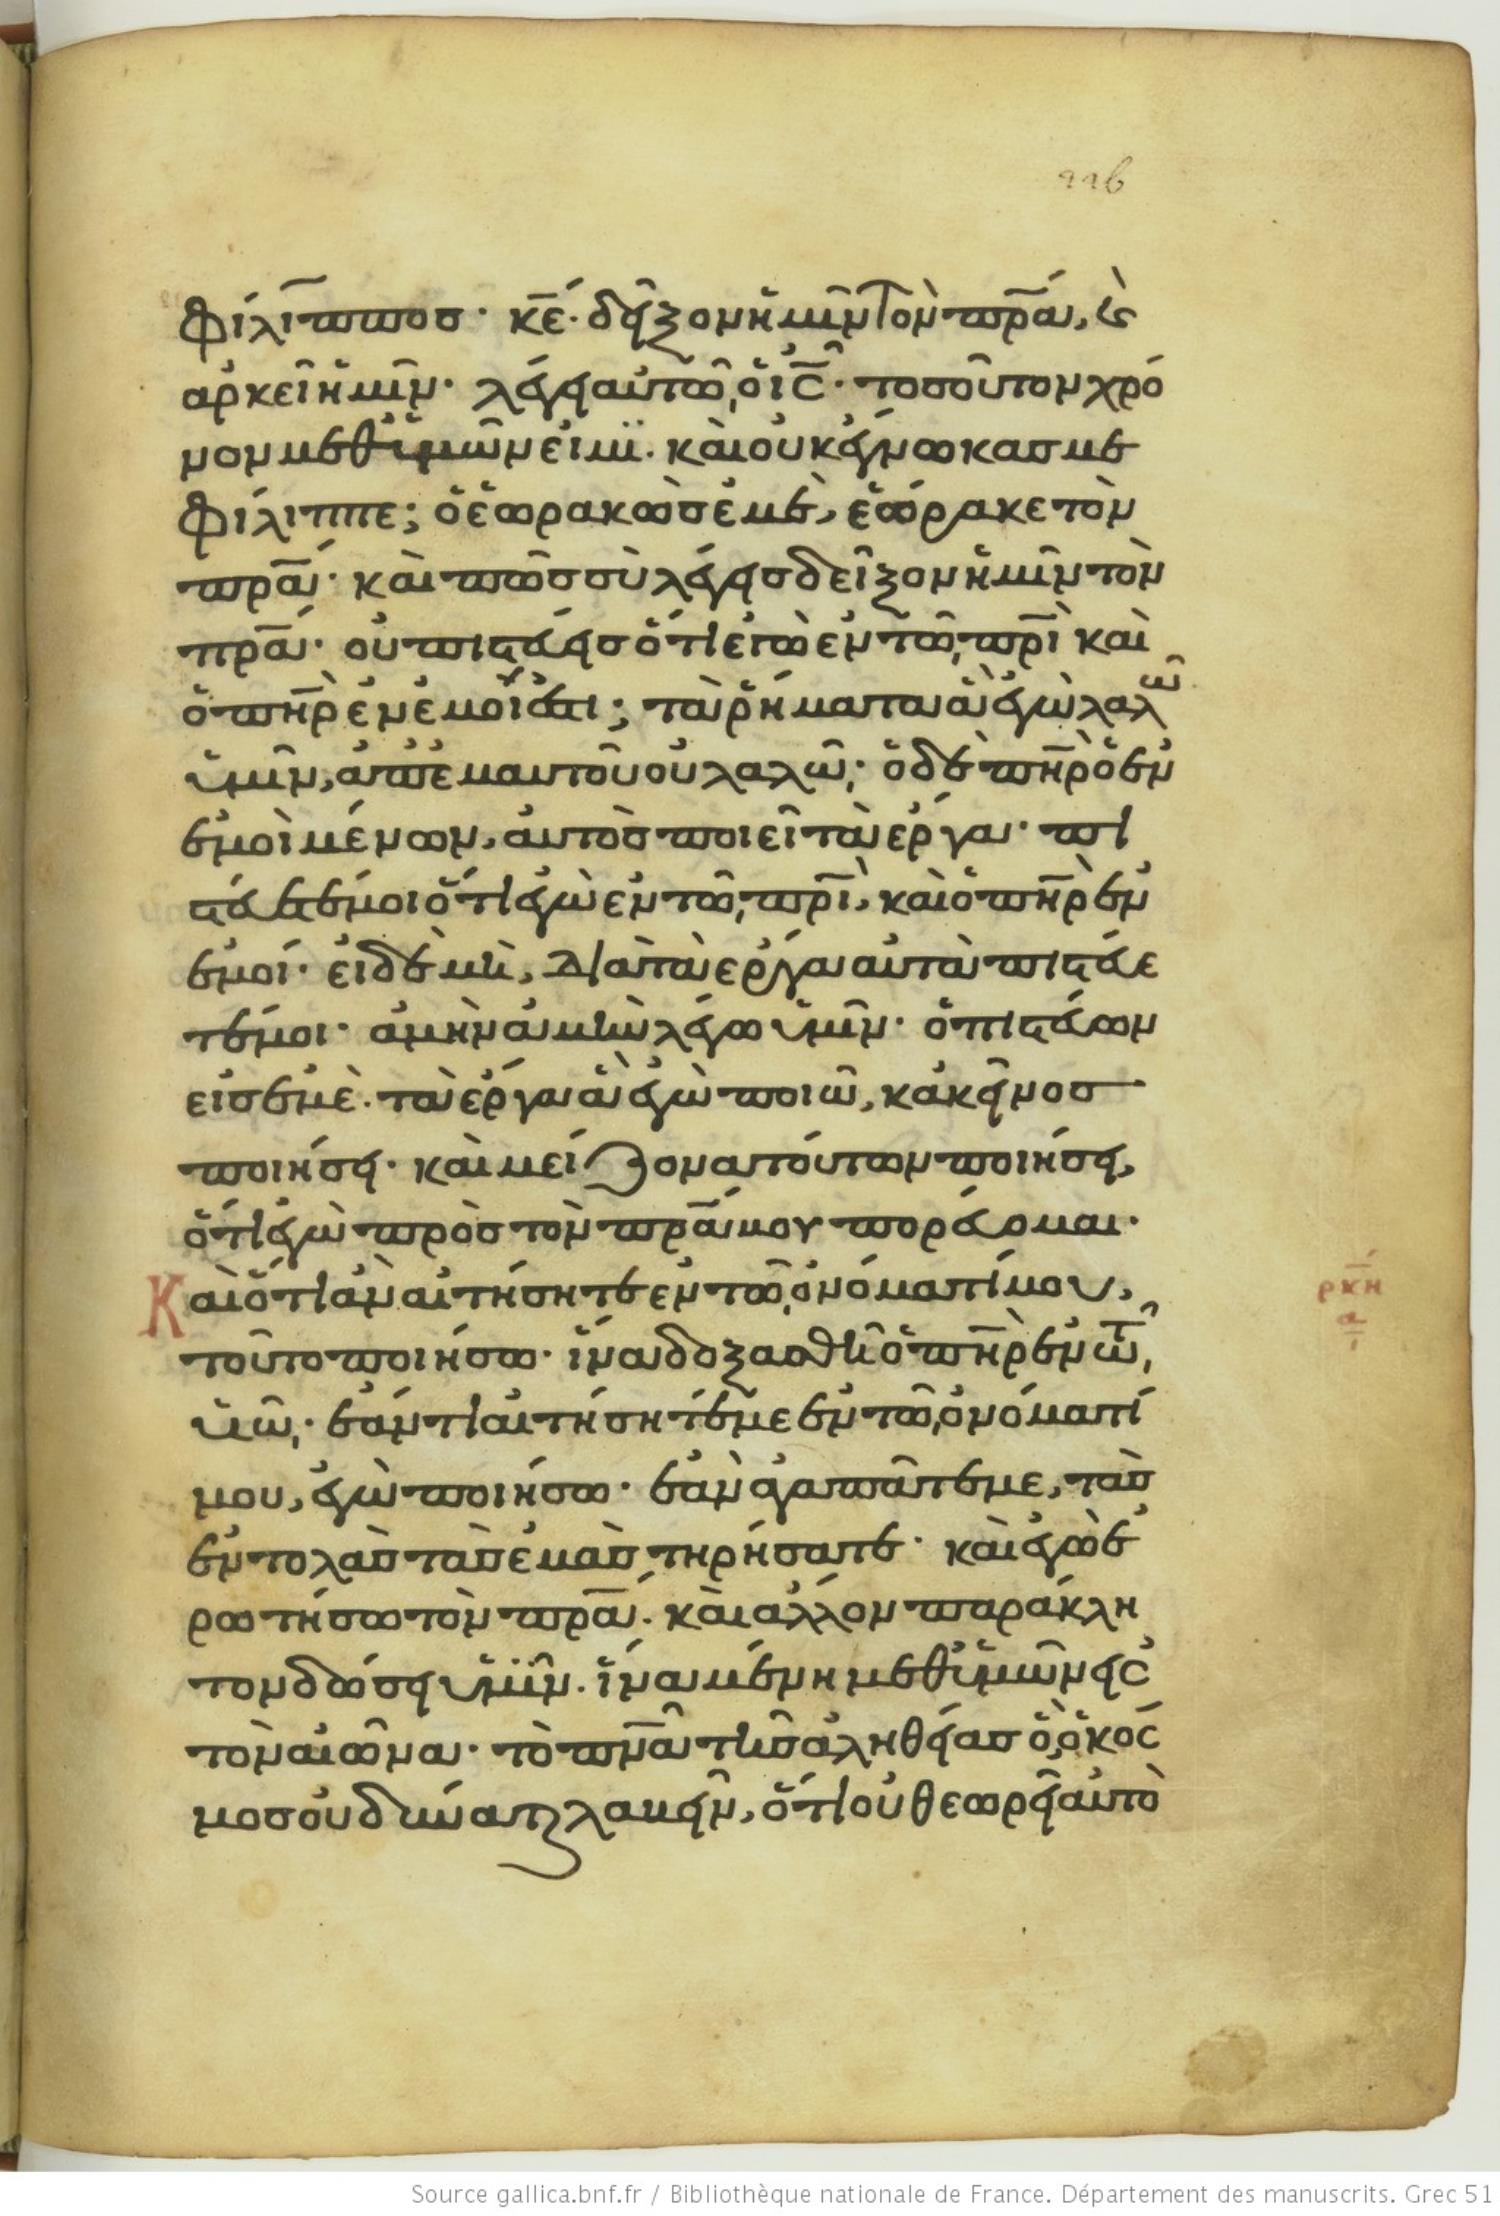 226
Φίλιππος· κε̅· δεῖξον ἡμῖν τὸν πρ̅α, καὶ
ἀρκεῖ ἡμῖν· λέγει αὐτῶ, ὁ ις̅· τοσοῦτον χρό
νον μεθ' ὑμῶν εἰμϊ. καὶ οὐκ ἔγνωκας με
Φίλιππε; ὁ ἑωρακὼς ἐμὲ, ἑώρακε τὸν
πρ̅α· καὶ πῶς σὺ λέγεις δεῖξον ἡμῖν τὸν
πρ̅α· οὐ πιστεύεις ὅτι ἐγὼ ἐν τῶ, πρ̅ι καὶ
ὁ πη̅ρ ἐν ἐμοί ἐστι; τὰ ῥήματα ἃ ἐγὼ λαλῶ
ὑμῖν, ἀπ' ἐμαυτοῦ οὐ λαλῶ· ὁ δὲ πη̅ρ ὁ ἐν
ἐμοὶ μένων, αὐτὸς ποιεῖ τὰ ἔργα· πι
στεύετέ μοι ὅτι ἐγὼ ἐν τῶ, πρ̅ι, καὶ ὁ πη̅ρ ἐν
ἐμοί· εἰ δὲ μὴ, διὰ τὰ ἔργα αὐτὰ πιστεύε
τέ μοι· ἀμὴν ἀμὴν λέγω ὑμῖν· ὁ πιστεύων
εἰς ἐμὲ. τὰ ἔργα ἃ ἐγὼ ποιῶ, κἀκεῖνος
ποιήσει· καὶ μείζονα τούτων ποιήσει,
ὅτι ἐγὼ πρὸς τὸν πρ̅α μου πορεύομαι·
Καὶ ὅτι ἂν αἰτήσητε ἐν τῶ, ὀνόματί μου,
ρκη
α
τοῦτο ποιήσω· ἵνα δοξασθῆ ὁ πη̅ρ ἐν τῶ,
υἱῶ,· ἐάν τι αἰτήσητέ με ἐν τῶ, ὀνόματί
μου, ἐγὼ ποιήσω· ἐὰν ἀγαπᾶτέ με, τὰς
ἐντολὰς τὰς ἐμὰς τηρήσατε· καὶ ἐγὼ ἐ
ρωτήσω τὸν πρ̅α. καὶ ἄλλον παράκλη
τον δώσει ὑμῖν. ἵνα μένη μεθ' ὑμῶν εἰς
τὸν αἰῶνα· τὸ πν̅α τῆς ἀληθείας ὃ, ὁ κόσ
μος οὐ δύναται λαβεῖν, ὅτι οὐ θεωρεῖ αὐτὸ
Source gallica.bnf.fr / Bibliothèque nationale de France. Département des manuscrits. Grec 51